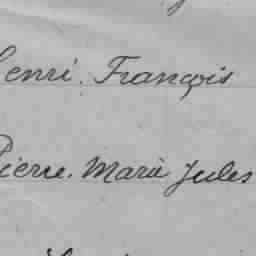 Henri. François
Pierre. Marie Jules